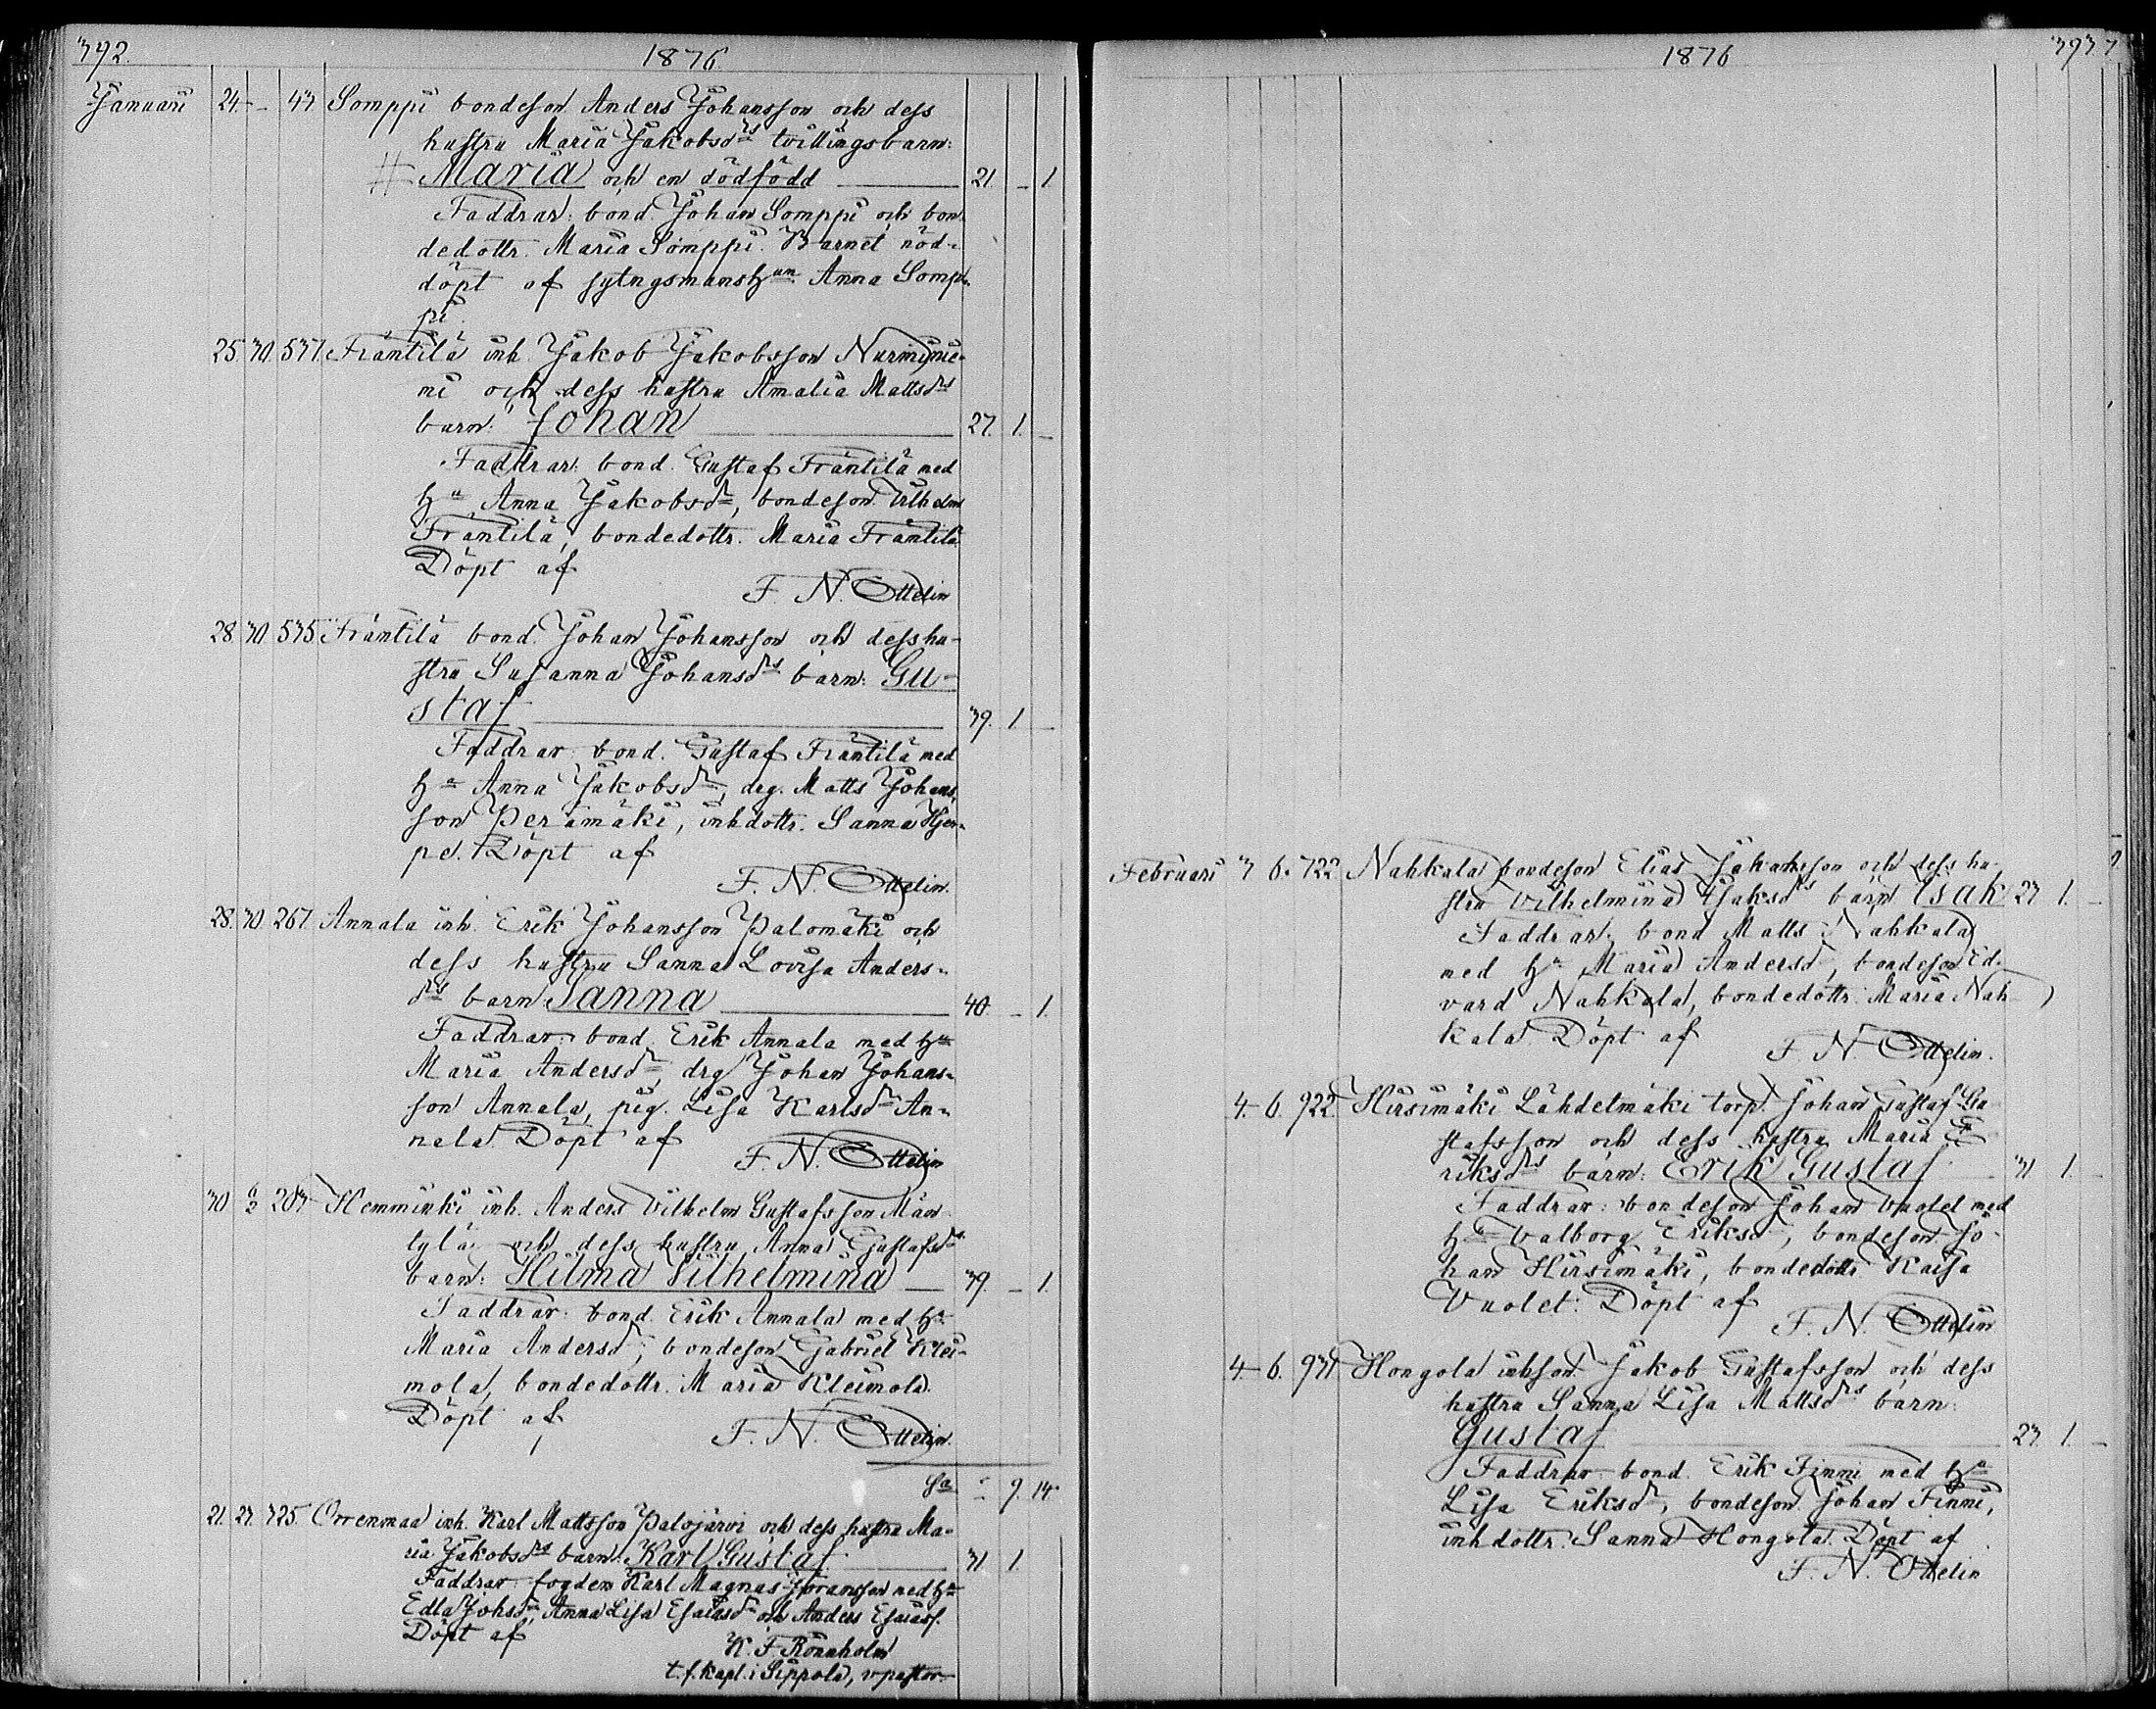 392.
1876.
Januari 24. – 43 Somppi bondeson Anders Johansson och dess
hustru Maria Jakobsdrs tvillingsbarn:
Maria och en dödfödd 21. – 1.
Faddrar: bond. Johan Somppi och bon-
dedottr. Maria Somppi. Barnet nöd-
döpt af sytngsmanshun Anna Somp-
pi.
25. 30. 537. Främtilä inh. Jakob Jakobsson Nurminie-
mi och dess hustru Amalia Mattsdrs
barn: Johan 27. 1. –
Faddrar: bond. Gustaf Främtilä med
hu Anna Jakobsdr, bondeson Vilhelm
Främtilä, bondedottr. Maria Främtilä.
Döpt af
F. N. Ottelin
28. 30. 535 Främtilä bond. Johan Johansson och dess hu-
stru Susanna Johansdrs barn: Gu-
staf 39. 1 –
Faddrar: bond. Gustaf Främtilä med
hu Anna Jakobsdr, drg. Matts Johans-
son Perämäki, inhdottr. Sanna Hjer-
pe. Döpt af
F. N. Ottelin.
28. 30. 267 Annala inh. Erik Johansson Palomäki och
dess hustru Sanna Lovisa Anders-
drs barn Sanna 40. – 1.
Faddrar: bond. Erik Annala med hu
Maria Andersdr, drg Johan Johans-
son Annala, pig. Lisa Karlsdr An-
nala. Döpt af
F. N. Ottelin
30 6/2 203 Hemminki inh. Anders Vilhelm Gustafsson Män-
tylä och dess hustru Anna Gustafsdrs
barn: Hilma Vilhelmina 39. – 1.
Faddrar: bond. Erik Annala med hu
Maria Andersdr, bondeson Gabriel Klei-
mola, bondedottr. Maria Kleimola.
Döpt af
F. N. Ottelin.
Sa 9. 14
21. 23. 325. Orrenmaa inh. Karl Mattsson Palojärvi och dess hustru Ma-
ria Jakobsdrs barn: Karl Gustaf 31 1.
Faddrar: fogden Karl Magnus Göransson med hu
Edla Johsdr, Anna Lisa Esaiasdr och Anders Esaiass.
Döpt af
K. F. Rönnholm
t. f. kapl. i Sippola, v pastor
1876
393
Februari 3 6. 722 Nahkala bondeson Elias Jakobsson och dess hu-
stru Vilhelmina Isaksdrs barn Isak 23 1. –
Faddrar: bond Matts Nahkala
med hu Maria Andersdr, bondeson Ed-
vard Nahkala, bondedottr. Maria Nah-
kala. Döpt af
F. N. Ottelin.
4. 6. 922. Hirsimäki Lähdetmäki torp. Johan Gustaf Gu-
stafsson och dess hustru Maria E-
riksdrs barn: Erik Gustaf 31 1. –
Faddrar: bondeson Johan Vuolet med
hu Valborg Eriksdr, bondeson Jo-
han Hirsimäki, bondedottr Kaisa
Vuolet. Döpt af
F. N. Ottelin
4. 6. 931 Hongola inhson Jakob Gustafsson och dess
hustru Sanna Lisa Mattsdrs barn:
Gustaf 23. 1. –
Faddrar: bond. Erik Finni med hu
Lisa Eriksdr, bondeson Johan Finni,
inhdottr. Sanna Hongola. Döpt af
F. N. Ottelin